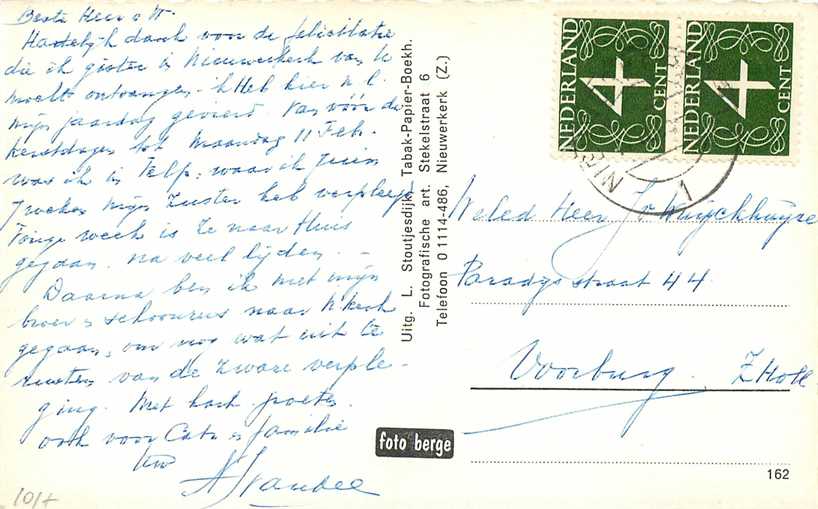 Beste Heer & Fr.
Hartelijk dank voor de felicitatie
die ik gister in Nieuwerkerk van U
mocht ontvangen. ik Heb hier n.l.
mijn jaardag gevierd. Van vóór de
kerstdagen tot Maandag 11 Feb.
was ik in Velp, waar ik ruim
7 weken mijn Zuster heb verpleegd
Vorige week is Ze naar Huis
gegaan. na veel lijden. —
Daarna ben ik met mijn
broer & schoonzus naar N.kerk
gegaan, om nog wat uit te
rusten van de zware verple-
ging. Met hart. groeten
ook voor Cato & familie
Uw
101+
Uitg. L. Stoutjesdijk, Tabak-Papier-Boekh.
Fotografische art. Stekelstraat 6
Telefoon 0 1114-486, Nieuwerkerk (Z.)
foto berge
NEDERLAND
4
CENT
NEDERLAND
4
CENT
1
Weled Heer
Paradijsstraat 44
Voorburg. Z Holl
162